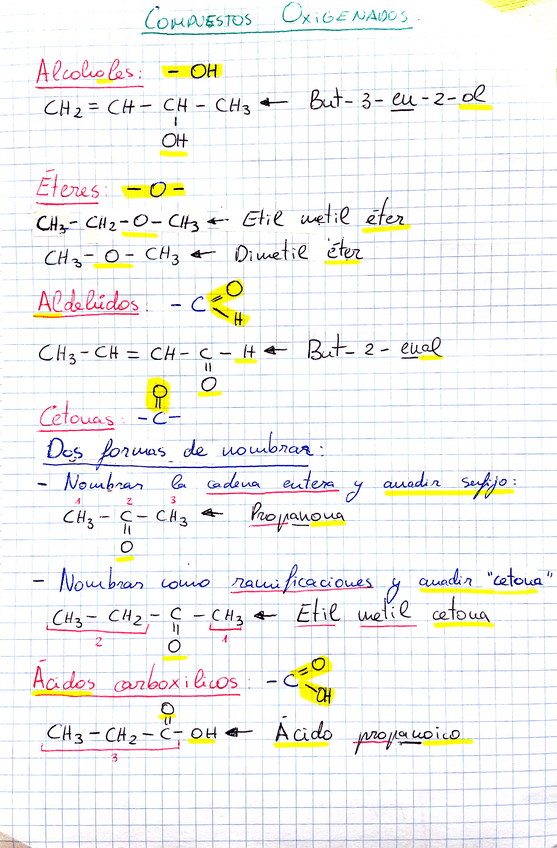 COMPUESTOS OXIGENADOS.
Alcoholes: - OH
CH₂ = CH - CH - CH₃ ← But - 3 - en - 2 - ol
OH
Éteres: - O -
CH₃ - CH₂ - O - CH₃ ← Etil metil éter
CH₃ - O - CH₃ ← Dimetil éter
Aldehídos: - C = O - H
CH₃ - CH = CH - C - H ← But - 2 - enal
O
O
Cetonas: - C -
Dos formas de nombrar:
- Nombrar la cadena entera y anadir sufijo:
1 2 3
CH₃ - C - CH₃ ← Propanona
O
- Nombrar como ramificaciones y anadir "cetona"
CH₃ - CH₂ - C - CH₃ ← Etil metil cetona
2 O 1
Ácidos carboxílicos: - C = O - OH
O
CH₃ - CH₂ - C - OH ← Ácido propanoico
3